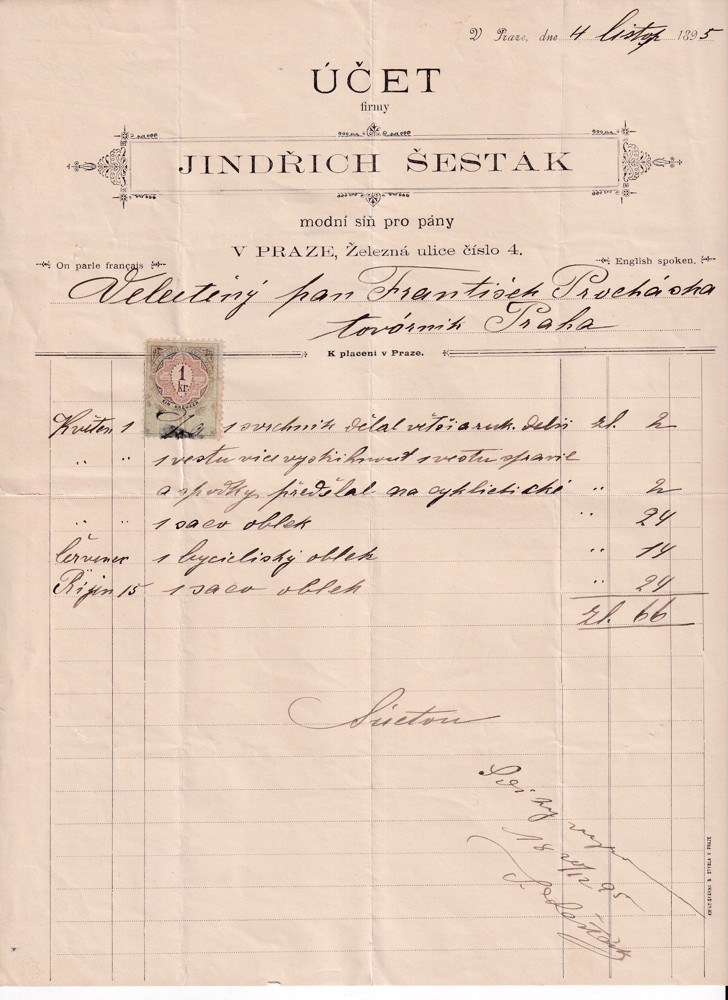 V Praze, dne 4 listop 1895
ÚČET
firmy
JINDŘICH ŠESTÁK
modní síň pro pány
V PRAZE, Železná ulice číslo 4.
On parle français
English spoken.
Velectěný pan František Procháska
továrník Praha
K placení v Praze.
1
kr.
Květen 1 1 svrchník dělal větší a ruk. delší zl. 2
" " 1 vestu více vystřihnout 1 vestu spravil
a spodky předělal na cyklistické " 2
" " 1 saco oblek " 24
Červenec 1 bycicliský oblek " 14
Říjen 15 1 saco oblek " 24
zl. 66
S úctou
18 20/12 95